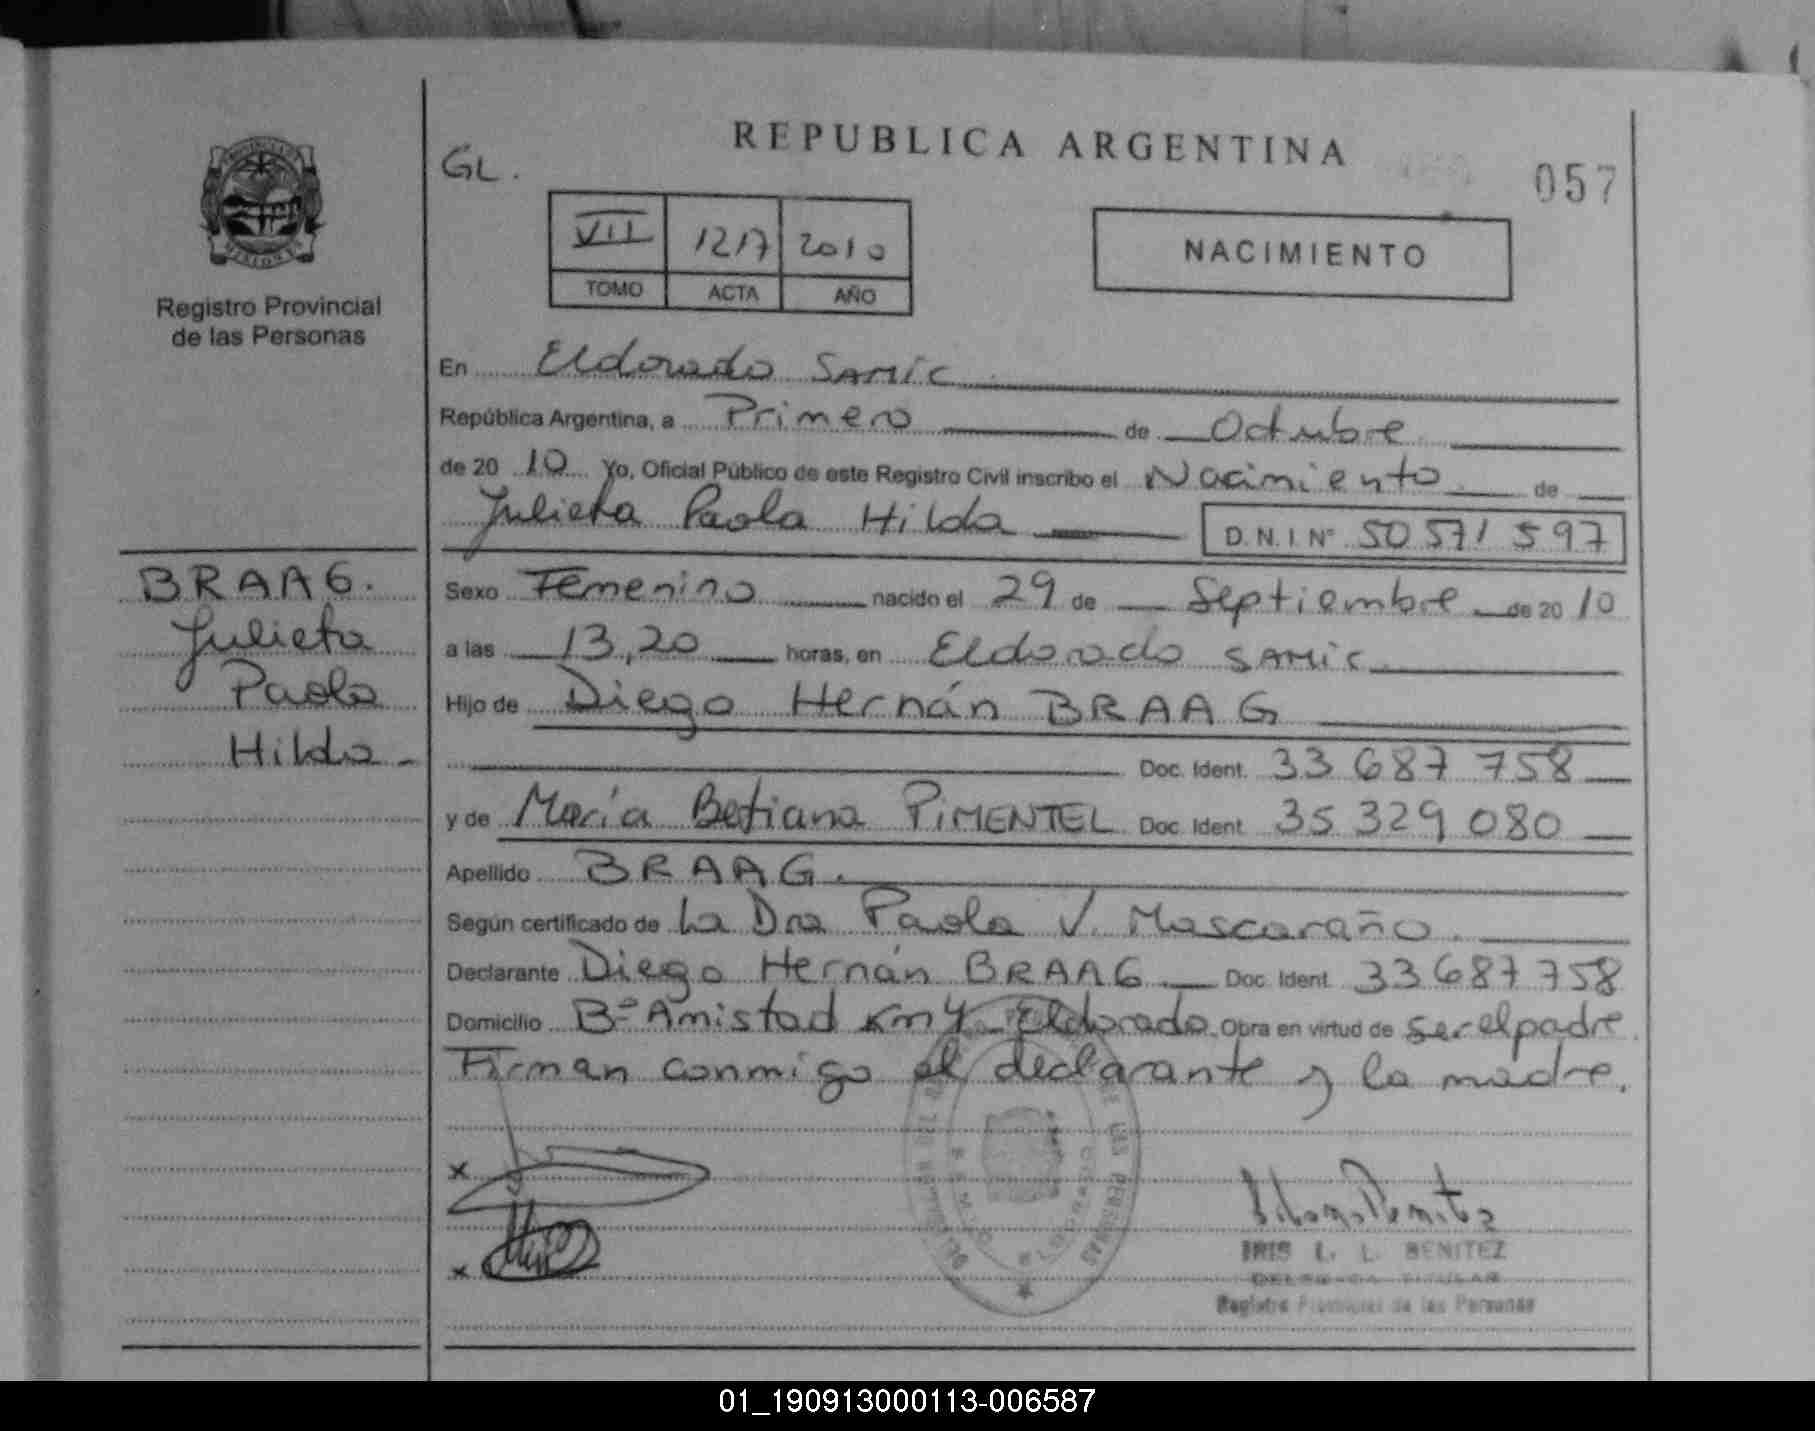 REPUBLICA ARGENTINA
GL.
057
VII 1217 2010
TOMO ACTA AÑO
NACIMIENTO
Registro Provincial
de las Personas
En Eldorado SAMic
República Argentina, a Primero de Octubre
de 20 10 Yo, Oficial Público de este Registro Civil inscribo el Nacimiento de
Julieta Paola Hilda D.N.I.Nº 50 571 597
BRAAG.
Julieta
Paola
Hilda
Sexo Femenino nacido el 29 de Septiembre de 20 10
a las 13,20 horas, en Eldorado SAMic
Hijo de Diego Hernán BRAAG
Doc. Ident. 33 687 758
y de María Betiana PIMENTEL Doc. Ident. 35 329 080
Apellido BRAAG.
Según certificado de La Dra Paola V. Mascaraño.
Declarante Diego Hernán BRAAG Doc. Ident. 33 687 758
Domicilio Bº Amistad Km 4 Eldorado. Obra en virtud de ser el padre.
Firman conmigo el declarante y la madre.
x
x
DE LAS PERSONAS
IRIS L. L. BENITEZ
DELEGADA TITULAR
Registro Provincial de las Personas
01_190913000113-006587